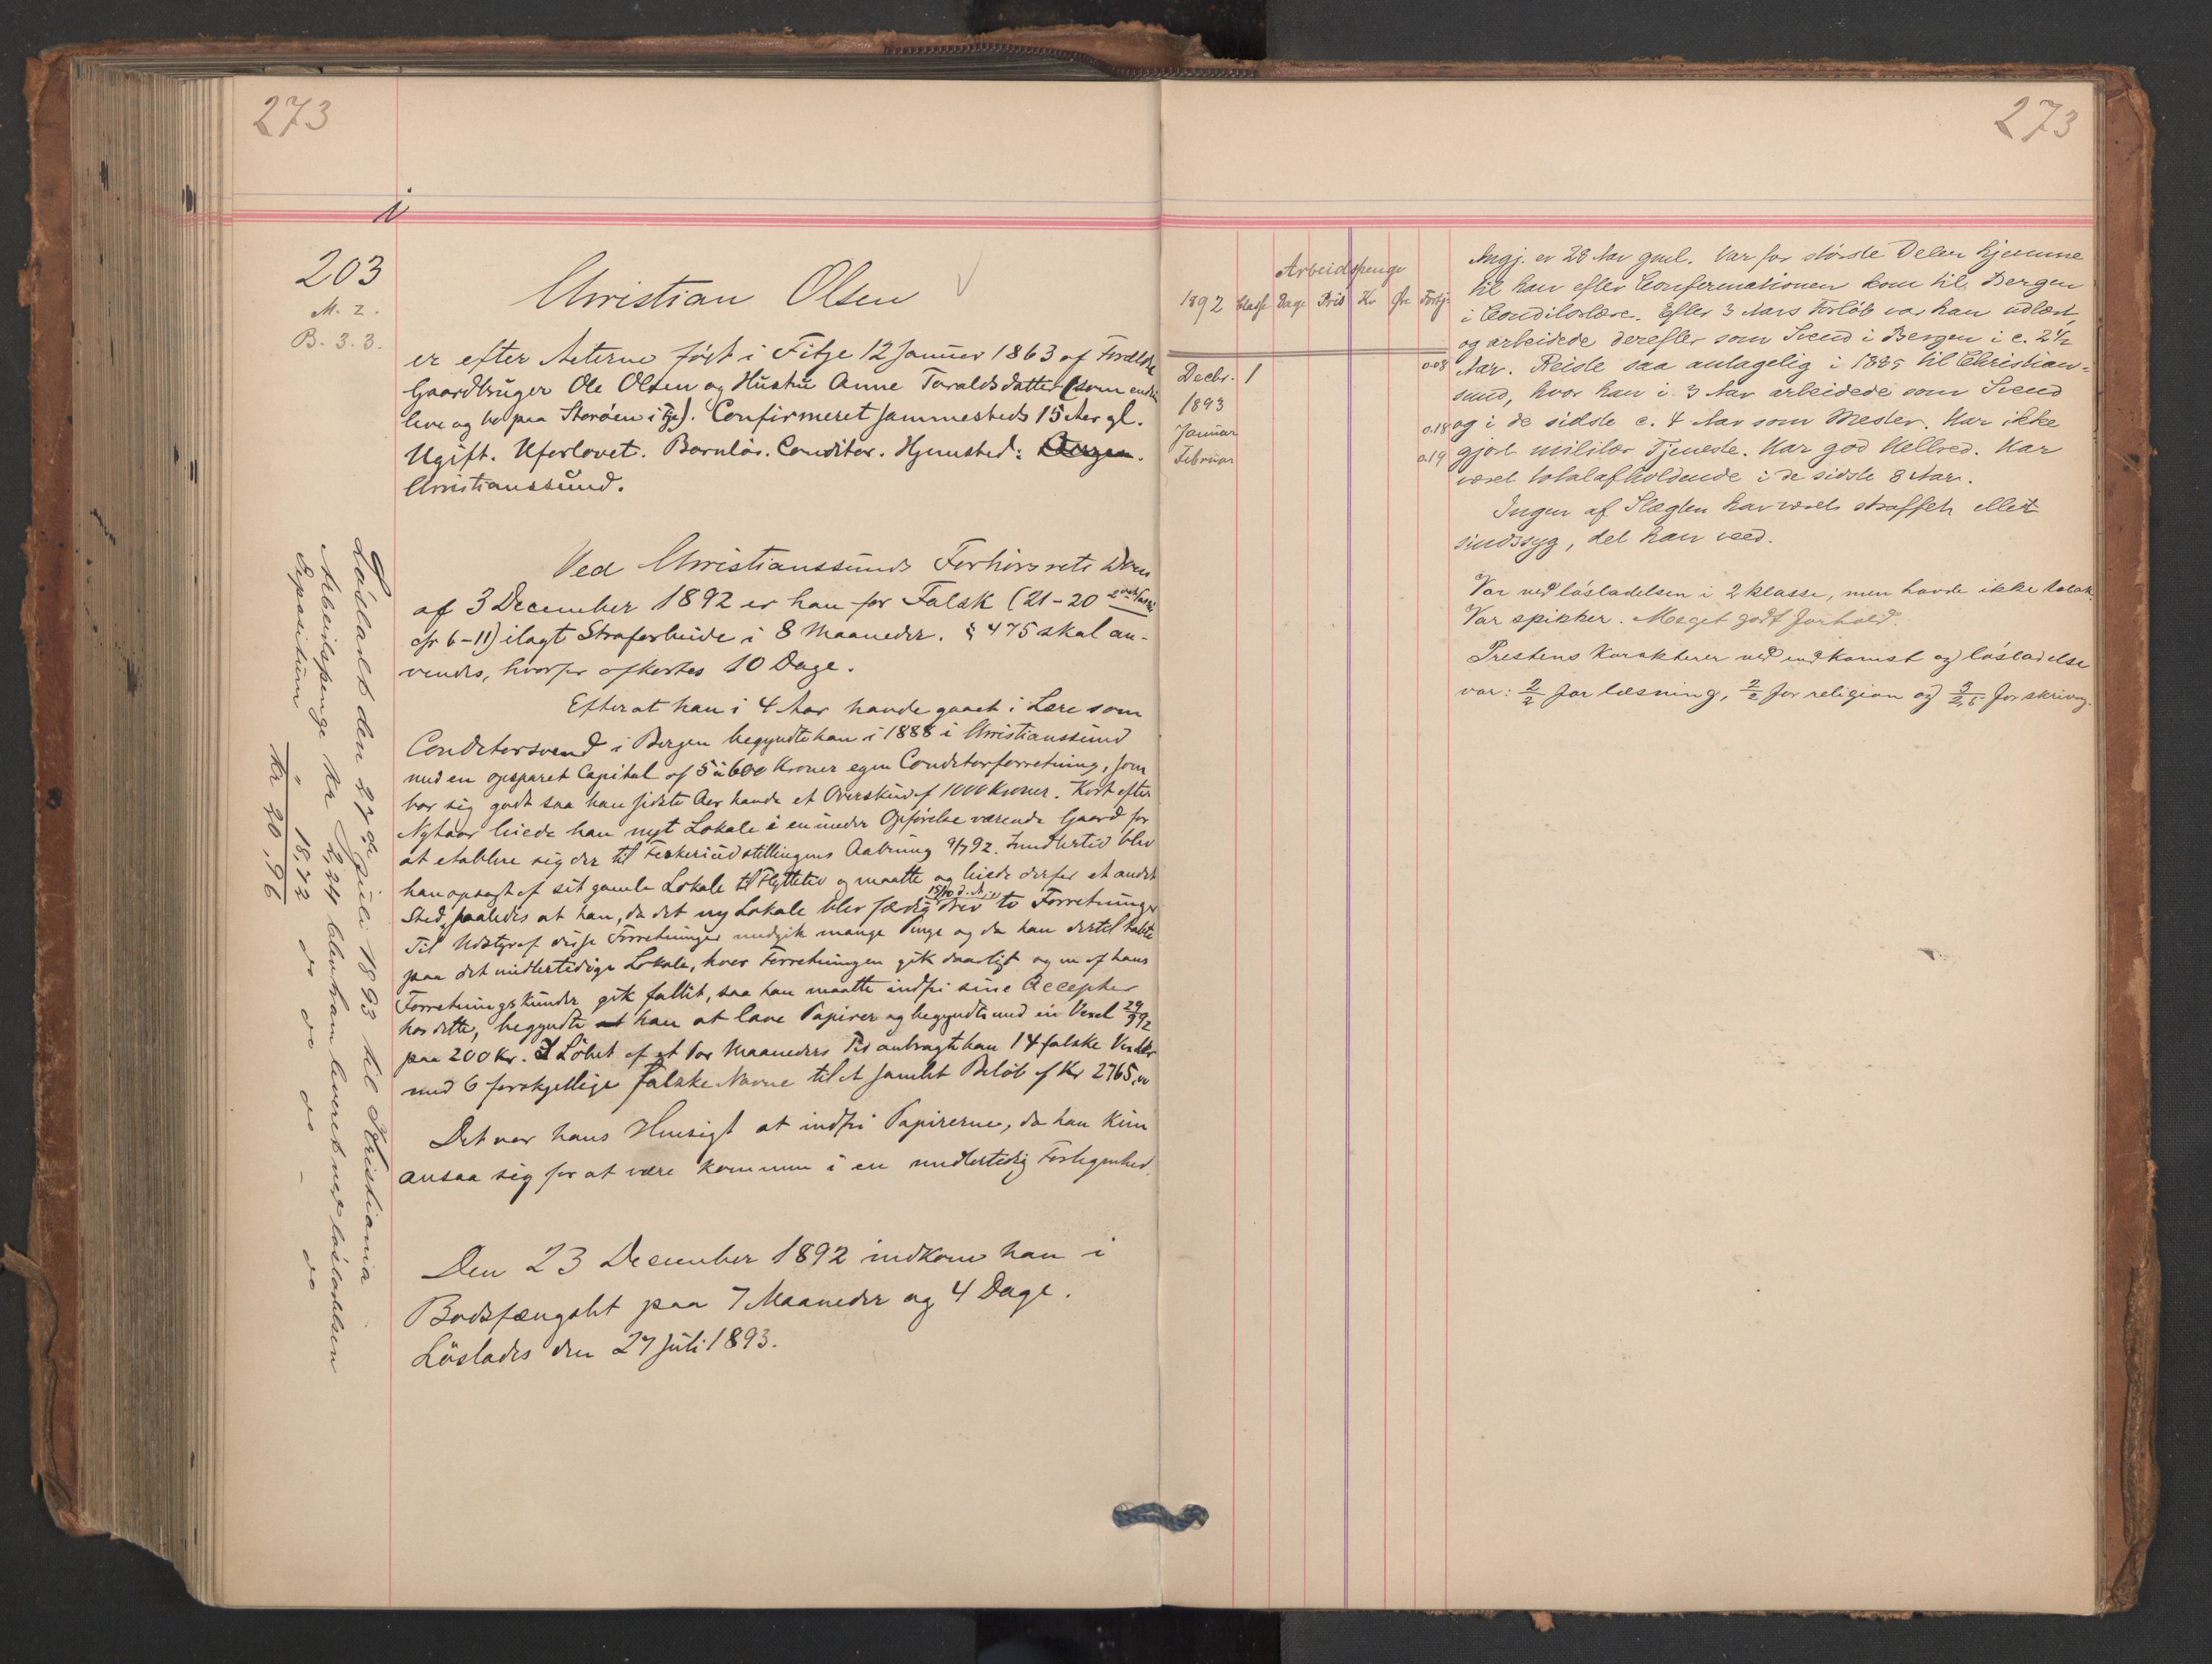 273
i
203
M. 2.
B. 3. 3.
Christian Olsen
er efter Atterne født i Fitje 12 Januar 1863 af Forældre
Gaardbruger Ole Olsen og Hustru Anne Taraldsdatter (som endnu
leve og bo paa Storøen i Fitje). Confirmeret sammesteds 15 Aar gl.
Ugift. Uforlovet. Barnløs. Conditor. Hjemsted: Bergen.
Christianssund.
Ved Christianssunds Forhørsrets Dom
af 3 December 1892 er han for Falsk (21-20
cfr 6-11) ilagt Strafarbeide i 8 Maaneder. § 475 skal an-
vendes, hvorfor afkortes 10 Dage.
Efterat han i 4 Aar havde gaaet i Lære som
Conditorsvend i Bergen begyndte han i 1888 i Christianssund
med en opsparet Capital af 5 à 600 Kroner egen Conditorforretning, som
bar sig godt saa han sidste Aar havde et Overskud af 1000 Kroner. Kort efter
Nytaar leiede han nyt Lokale i en under Opførelse værende Gaard for
at etablere sig der til Fiskeriudstillingens Aabning 9/7 92. Imidlertid blev
han opsagt af sit gamle Lokale til Flyttetid og maatte og leiede derfor et andet
Sted, saaledes at han, da det ny Lokale blev færdig 15/10 d. A. drev to Forretninger
Til Udstyr af disse Forretninger medgik mange Penge og da han dertil tabte
paa det midlertidige Lokale, hvor Forretningen gik daarligt og en af hans
Forretningskunder gik fallit, saa han maatte indfri sine Accepter
hos dette, begyndte han at lave Papirer og begyndte med en Vexel 29/9 92
paa 200 Kr. I Løbet af et Par Maaneders Tid anbragte han 14 falske Vexler
med 6 forskjellige falske Navne til et samlet Beløb af Kr 2765,00
Det var hans Hensigt at indfri Papirerne, da han kun
ansaa sig for at være kommen i en midlertidig Forlegenhed.
Den 23 December 1892 indkom han i
Bodsfængslet paa 7 Maaneder og 4 Dage.
Løslades den 27 Juli 1893.
Løsladt den 27de Juli 1893 til Kristiania
Arbeidspenge Kr 2,24 blev ham leveret ved løsladelsen
Depositum " 18,72 do do do - do
Kr 20,96
273
Arbeidspenge
1892 Klasse Dage Pris Kr Øre Fortj.
Decbr. 1 0.08
1893
Januar 0.18
Februar 0.19
Angj. er 28 Aar gml. Var for største Delen hjemme
til han efter Confermationen kom til Bergen
i Conditorlære. Efter 3 Aars Forløb var han udlært
og arbeidede derefter som Svend i Bergen i c. 2 1/2
Aar. Reiste saa antagelig i 1885 til Christian-
sund, hvor han i 3 Aar arbeidede som Svend
og i de sidste c. 4 Aar som Mester. Har ikke
gjort militær Tjeneste. Har god Helbred. Har
været totalafholdende i de sidste 8 Aar.
Ingen af Slægten har været straffet eller
sindssyg, det han veed.
Var ved løsladelsen i 2 klasse, men havde ikke tobak.
Var spikker. Meget godt forhold.
Prestens Karakterer ved indkomst og løsladelse
var: 2/2 for læsning, 2/2 for religion og 3/2,5 for skrivng.